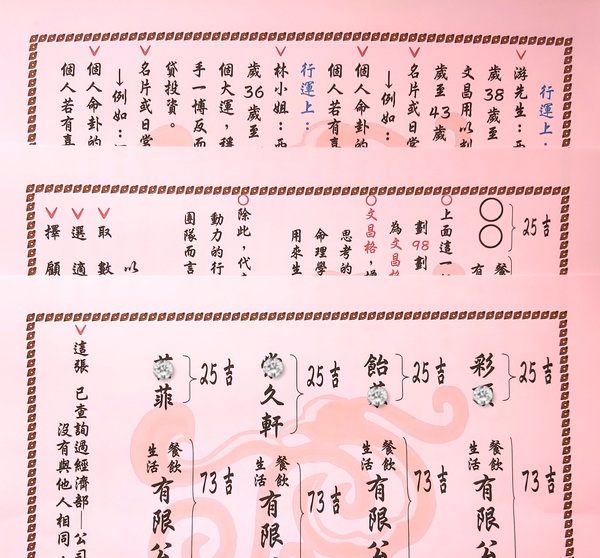 行運上:
游先生:
歲38歲至
文昌用以
歲至43歲
名片或日
↓例如:
個人命卦的
個人若有
行運上:
林小姐:
歲36歲至
個大運,
手一博反而
貸投資。
名片或日
↓例如:
個人命卦的
個人若有
25吉
○○
上面這一
劃98劃
為文昌格
文昌格,
思考的
命理學
用來生
除此,代
動力的行
團隊而言
以
取數
選適
擇顧
彩
25吉
餐飲
生活
有限公
73吉
飴
25吉
餐飲
生活
有限公
73吉
久軒
25吉
餐飲
生活
有限公
73吉
菲
25吉
餐飲
生活
有限公
73吉
這張 已查詢過經濟部—公司
沒有與他人相同,